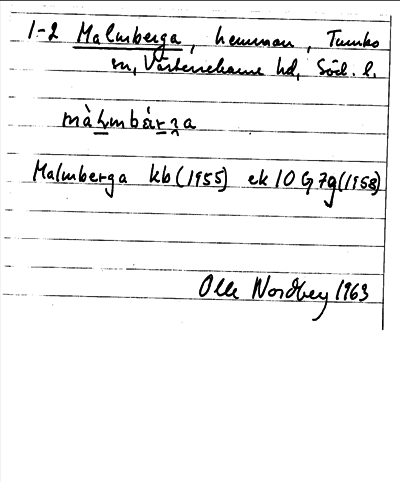 1-2 Malmberga, hemman, Tumbo
sn, Västerrekarne hd, Söd. l.
màlmbár̲ʒa
Malmberga kb (1955) ek 10 G 7g (1958)
Olle Nordberg 1963